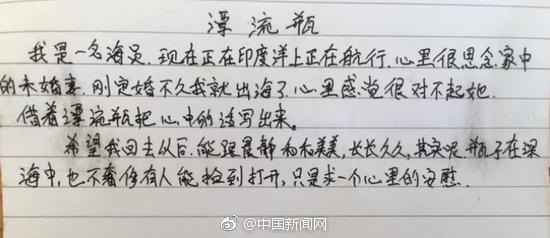 漂流瓶
我是一名海员.现在正在印度洋上正在航行.心里很思念家中
的未婚妻.刚定婚不久我就出海了.心里感觉很对不起她.
借着漂流瓶把心中的话写出来。
希望我回去以后.能跟晨静和和美美,长长久久,其实呢.瓶子在深
海中,也不奢侈有人能捡到打开,只是求一个心里的安慰.
@中国新闻网